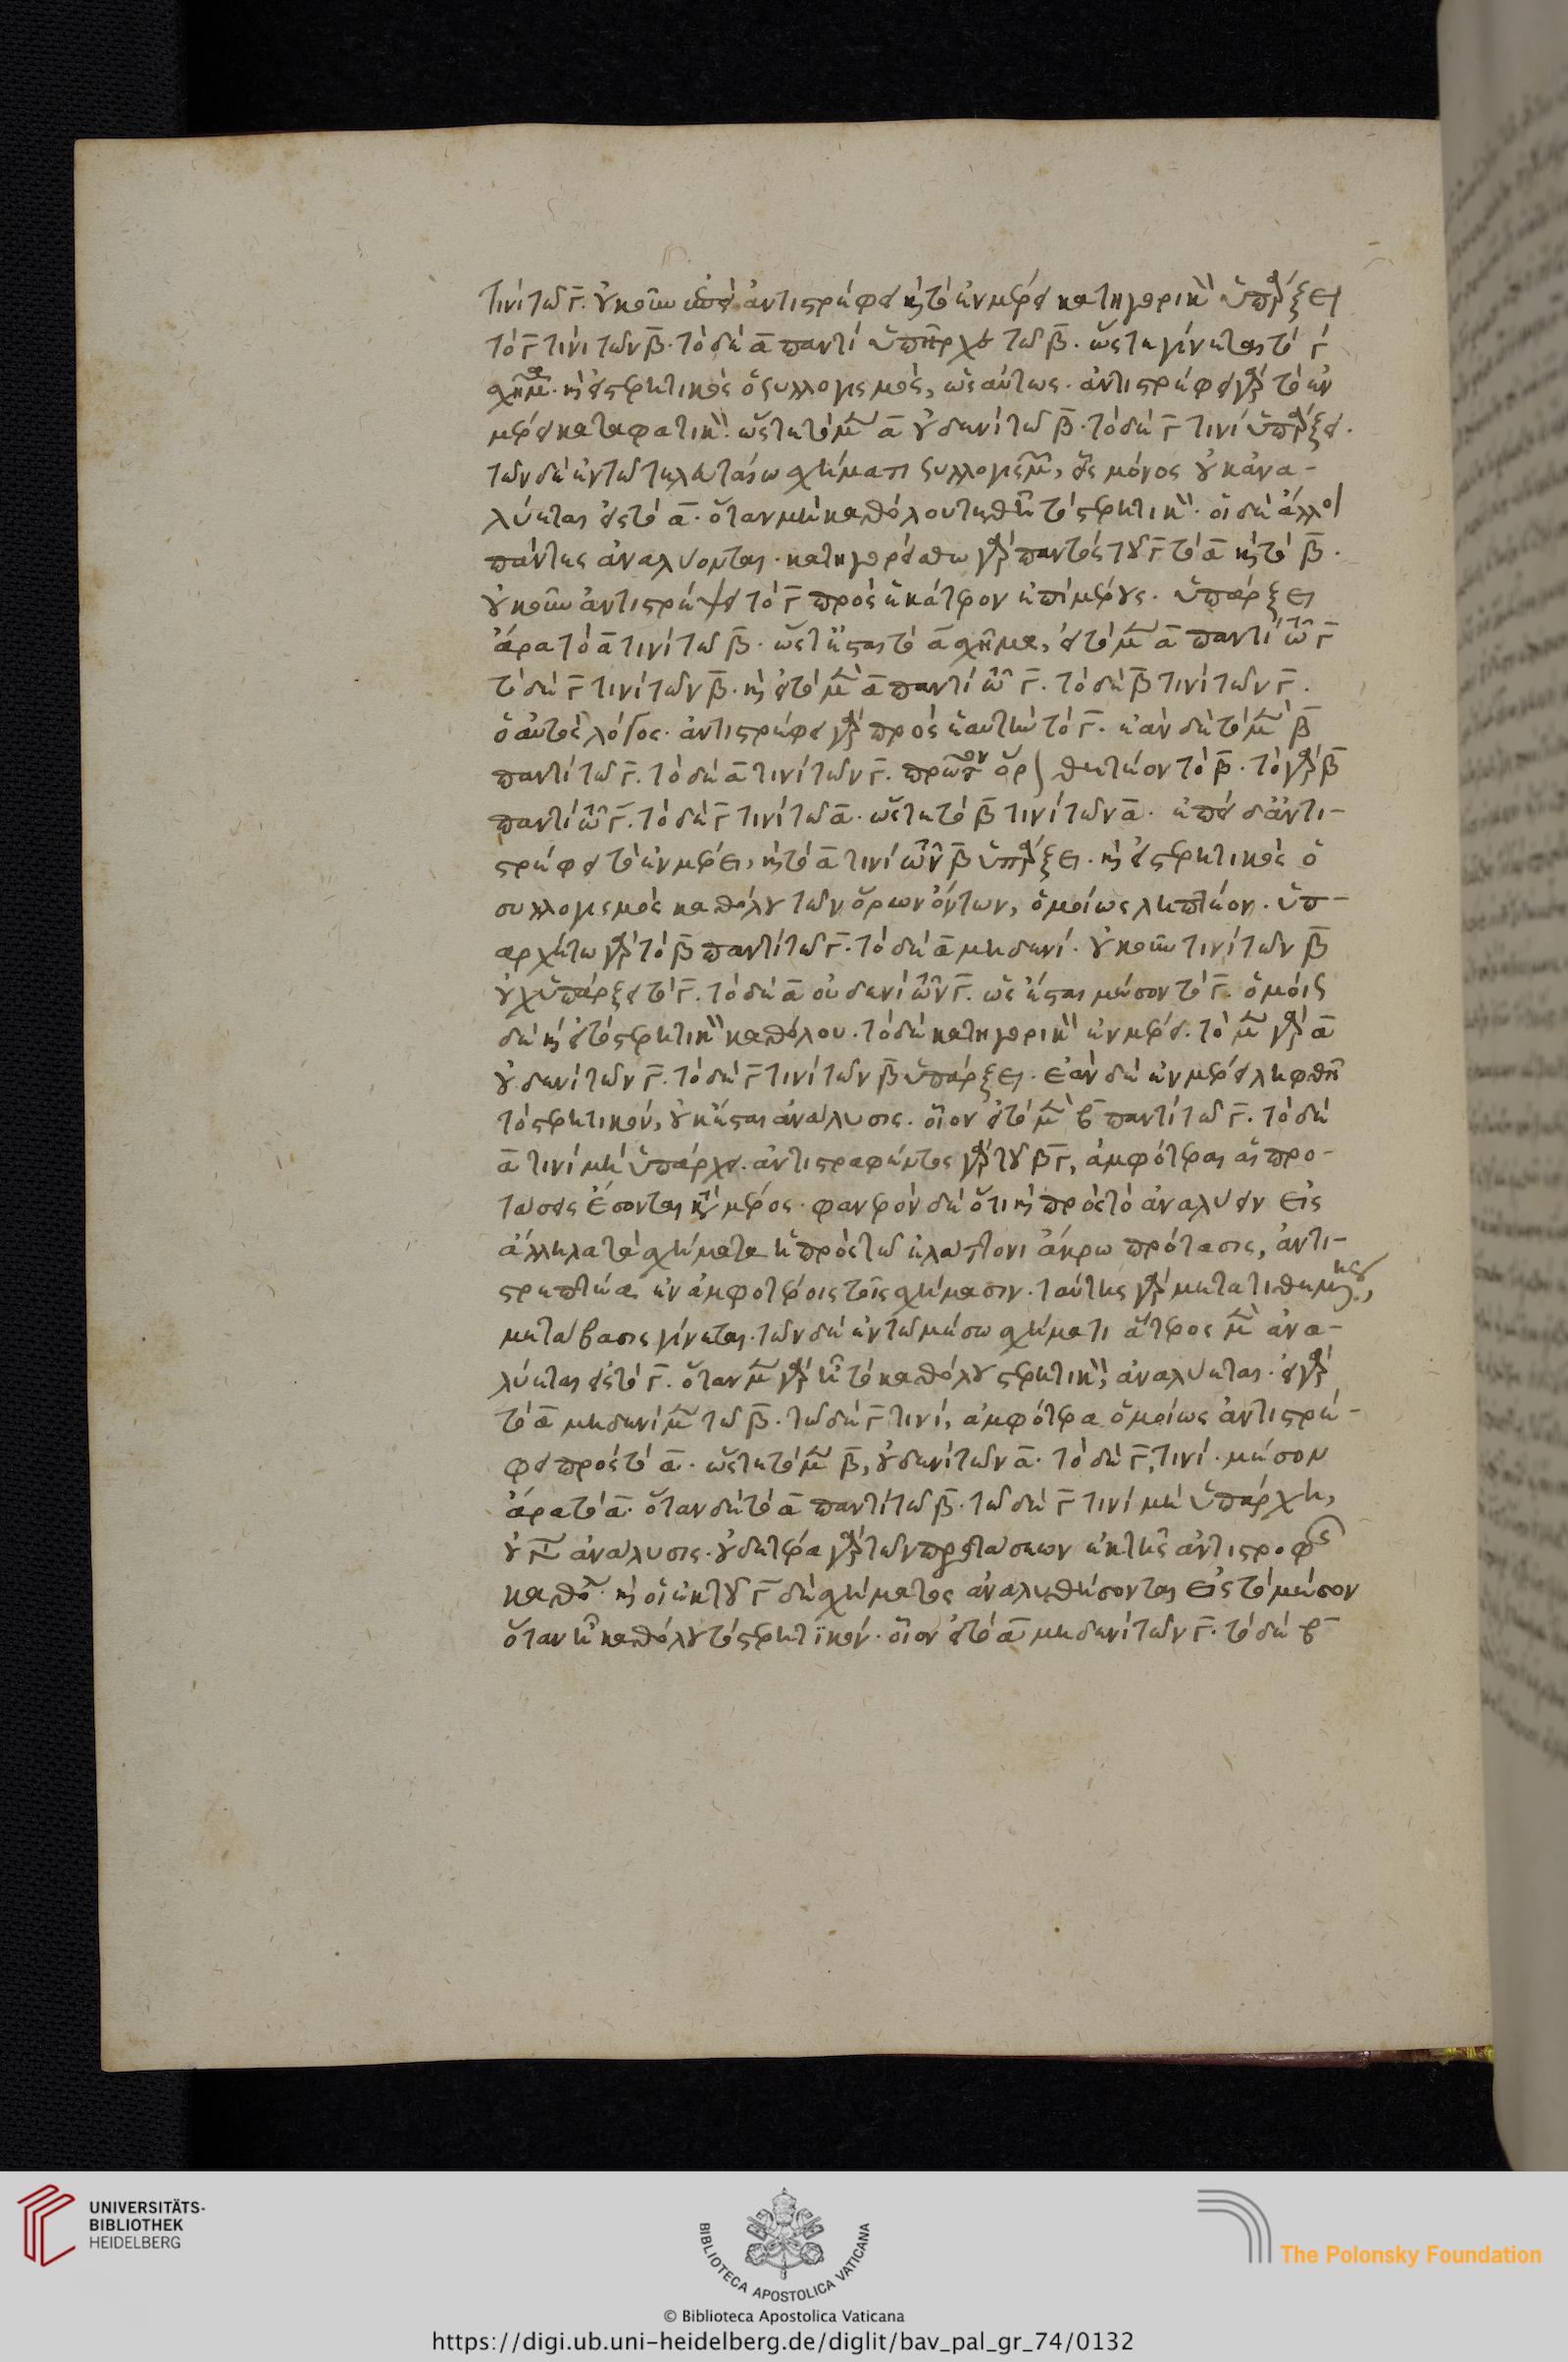 τινὶ τῶ γ̄. οὐκοῦν ἐπεὶ ἀντιστρέφει καὶ τὸ ἐν μέρει κατηγορικὸν ὑπάρξει
τὸ γ̄ τινὶ τῶν β̄. τὸ δὲ ᾱ παντὶ ὑπῆρχε τῶ β̄. ὥστε γίνεται τὸ γ
σχῆμα. καὶ εἰ στερητικὸς ὁ συλλογισμὸς, ὡσαύτως. ἀντιστρέφει γὰρ τὸ ἐν
μέρει καταφατικόν. ὥστε τὸ μὲν ᾱ οὐδενὶ τῶ β̄. τὸ δὲ γ̄ τινὶ ὑπάρξει.
τῶν δὲ ἐν τῶ τελευταίω σχήματι συλλογισμῶν, εἷς μόνος οὐκ ἀνα-
λύεται εἰς τὸ ᾱ. ὅταν μὴ καθόλου τεθῆ τὸ στερητικόν. οἱ δὲ ἄλλοι
πάντες ἀναλύονται. κατηγορείσθω γὰρ παντὸς τοῦ γ̄ τὸ ᾱ καὶ τὸ β̄.
οὐκοῦν ἀντιστρέψει τὸ γ̄ πρὸς ἑκάτερον ἐπὶ μέρους. ὑπάρξει
ἄρα τὸ ᾱ τινὶ τῶ β̄. ὥστ' ἔσται τὸ ᾱ σχῆμα, εἰ τὸ μὲν ᾱ παντὶ τῶ γ̄
τὸ δὲ γ̄ τινὶ τῶν β̄. καὶ εἰ τὸ μὲν ᾱ παντὶ τῶ γ̄. τὸ δὲ β̄ τινὶ τῶν γ̄.
ὁ αὐτὸς λόγος. ἀντιστρέφει γὰρ πρὸς ἑαυτὴν τὸ γ̄. ἐὰν δὲ τὸ μὲν β̄
παντὶ τῶ γ̄. τὸ δὲ ᾱ τινὶ τῶν γ̄. πρῶτον ὅρον θετέον τὸ β̄. τὸ γὰρ β̄
παντὶ τῶ γ̄. τὸ δὲ γ̄ τινὶ τῶ ᾱ. ὥστε τὸ β̄ τινὶ τῶν ᾱ. ἐπεὶ δ' ἀντι-
στρέφει τὸ ἐν μέρει, καὶ τὸ ᾱ τινὶ τῶν β̄ ὑπάρξει. καὶ εἰ στερητικὸς ὁ
συλλογισμὸς καθόλου τῶν ὅρων ὄντων, ὁμοίως ληπτέον. ὑπ-
αρχέτω γὰρ τὸ β̄ παντὶ τῶ γ̄. τὸ δὲ ᾱ μηδενί. οὐκοῦν τινὶ τῶν β̄
οὐχ ὑπάρξει τὸ γ̄. τὸ δὲ ᾱ οὐδενὶ τῶν γ̄. ὡς ἔσται μέσον τὸ γ̄. ὁμοίως
δὲ καὶ εἰ τὸ στερητικὸν καθόλου. τὸ δὲ κατηγορικὸν ἐν μέρει. τὸ μὲν γὰρ ᾱ
οὐδενὶ τῶν γ̄. τὸ δὲ γ̄ τινὶ τῶν β̄ ὑπάρξει. ἐὰν δὲ ἐν μέρει ληφθῆ
τὸ στερητικόν, οὐκ ἔσται ἀνάλυσις. οἷον εἰ τὸ μὲν β̄ παντὶ τῶ γ̄. τὸ δὲ
ᾱ τινὶ μὴ ὑπάρχει. ἀντιστραφέντος γὰρ τοῦ β̄ γ̄, ἀμφότεραι αἱ προ-
τάσεις ἔσονται κατὰ μέρος. φανερὸν δὲ ὅτι καὶ πρὸς τὸ ἀναλύειν εἰς
ἄλληλα τὰ σχήματα ἡ πρὸς τῶ ἐλάττονι ἄκρω πρότασις, ἀντι-
στρεπτέα ἐν ἀμφοτέροις τοῖς σχήμασιν. ταύτης γὰρ μετατιθεμένης,
μετάβασις γίνεται. τῶν δὲ ἐν τῶ μέσω σχήματι ἅτερος μὲν ἀνα-
λύεται εἰς τὸ γ̄. ὅταν μὲν γὰρ ἦ τὸ καθόλου στερητικὸν, ἀναλύεται. εἰ γὰρ
τὸ ᾱ μηδενὶ μὲν τῶ β̄. τῶ δὲ γ̄ τινί, ἀμφότερα ὁμοίως ἀντιστρέ-
φει πρὸς τὸ ᾱ. ὥστε τὸ μὲν β̄, οὐδενὶ τῶν ᾱ. τὸ δὲ γ̄, τινί. μέσον
ἄρα τὸ ᾱ. ὅταν δὲ τὸ ᾱ παντὶ τῶ β̄. τῶ δὲ γ̄ τινὶ μὴ ὑπάρχη,
οὐ γίνεται ἀνάλυσις. οὐδετέρα γὰρ τῶν προτάσεων ἐκ τῆς ἀντιστροφῆς
καθόλου. καὶ οἱ ἐκ τοῦ γ̄ δὲ σχήματος ἀναλυθήσονται εἰς τὸ μέσον
ὅταν ἦ καθόλου τὸ στερητικόν. οἷον εἰ τὸ ᾱ μηδενὶ τῶν γ̄. τὸ δὲ β̄
UNIVERSITÄTS-
BIBLIOTHEK
HEIDELBERG
BIBLIOTECA APOSTOLICA VATICANA
The Polonsky Foundation
© Biblioteca Apostolica Vaticana
https://digi.ub.uni-heidelberg.de/diglit/bav_pal_gr_74/0132